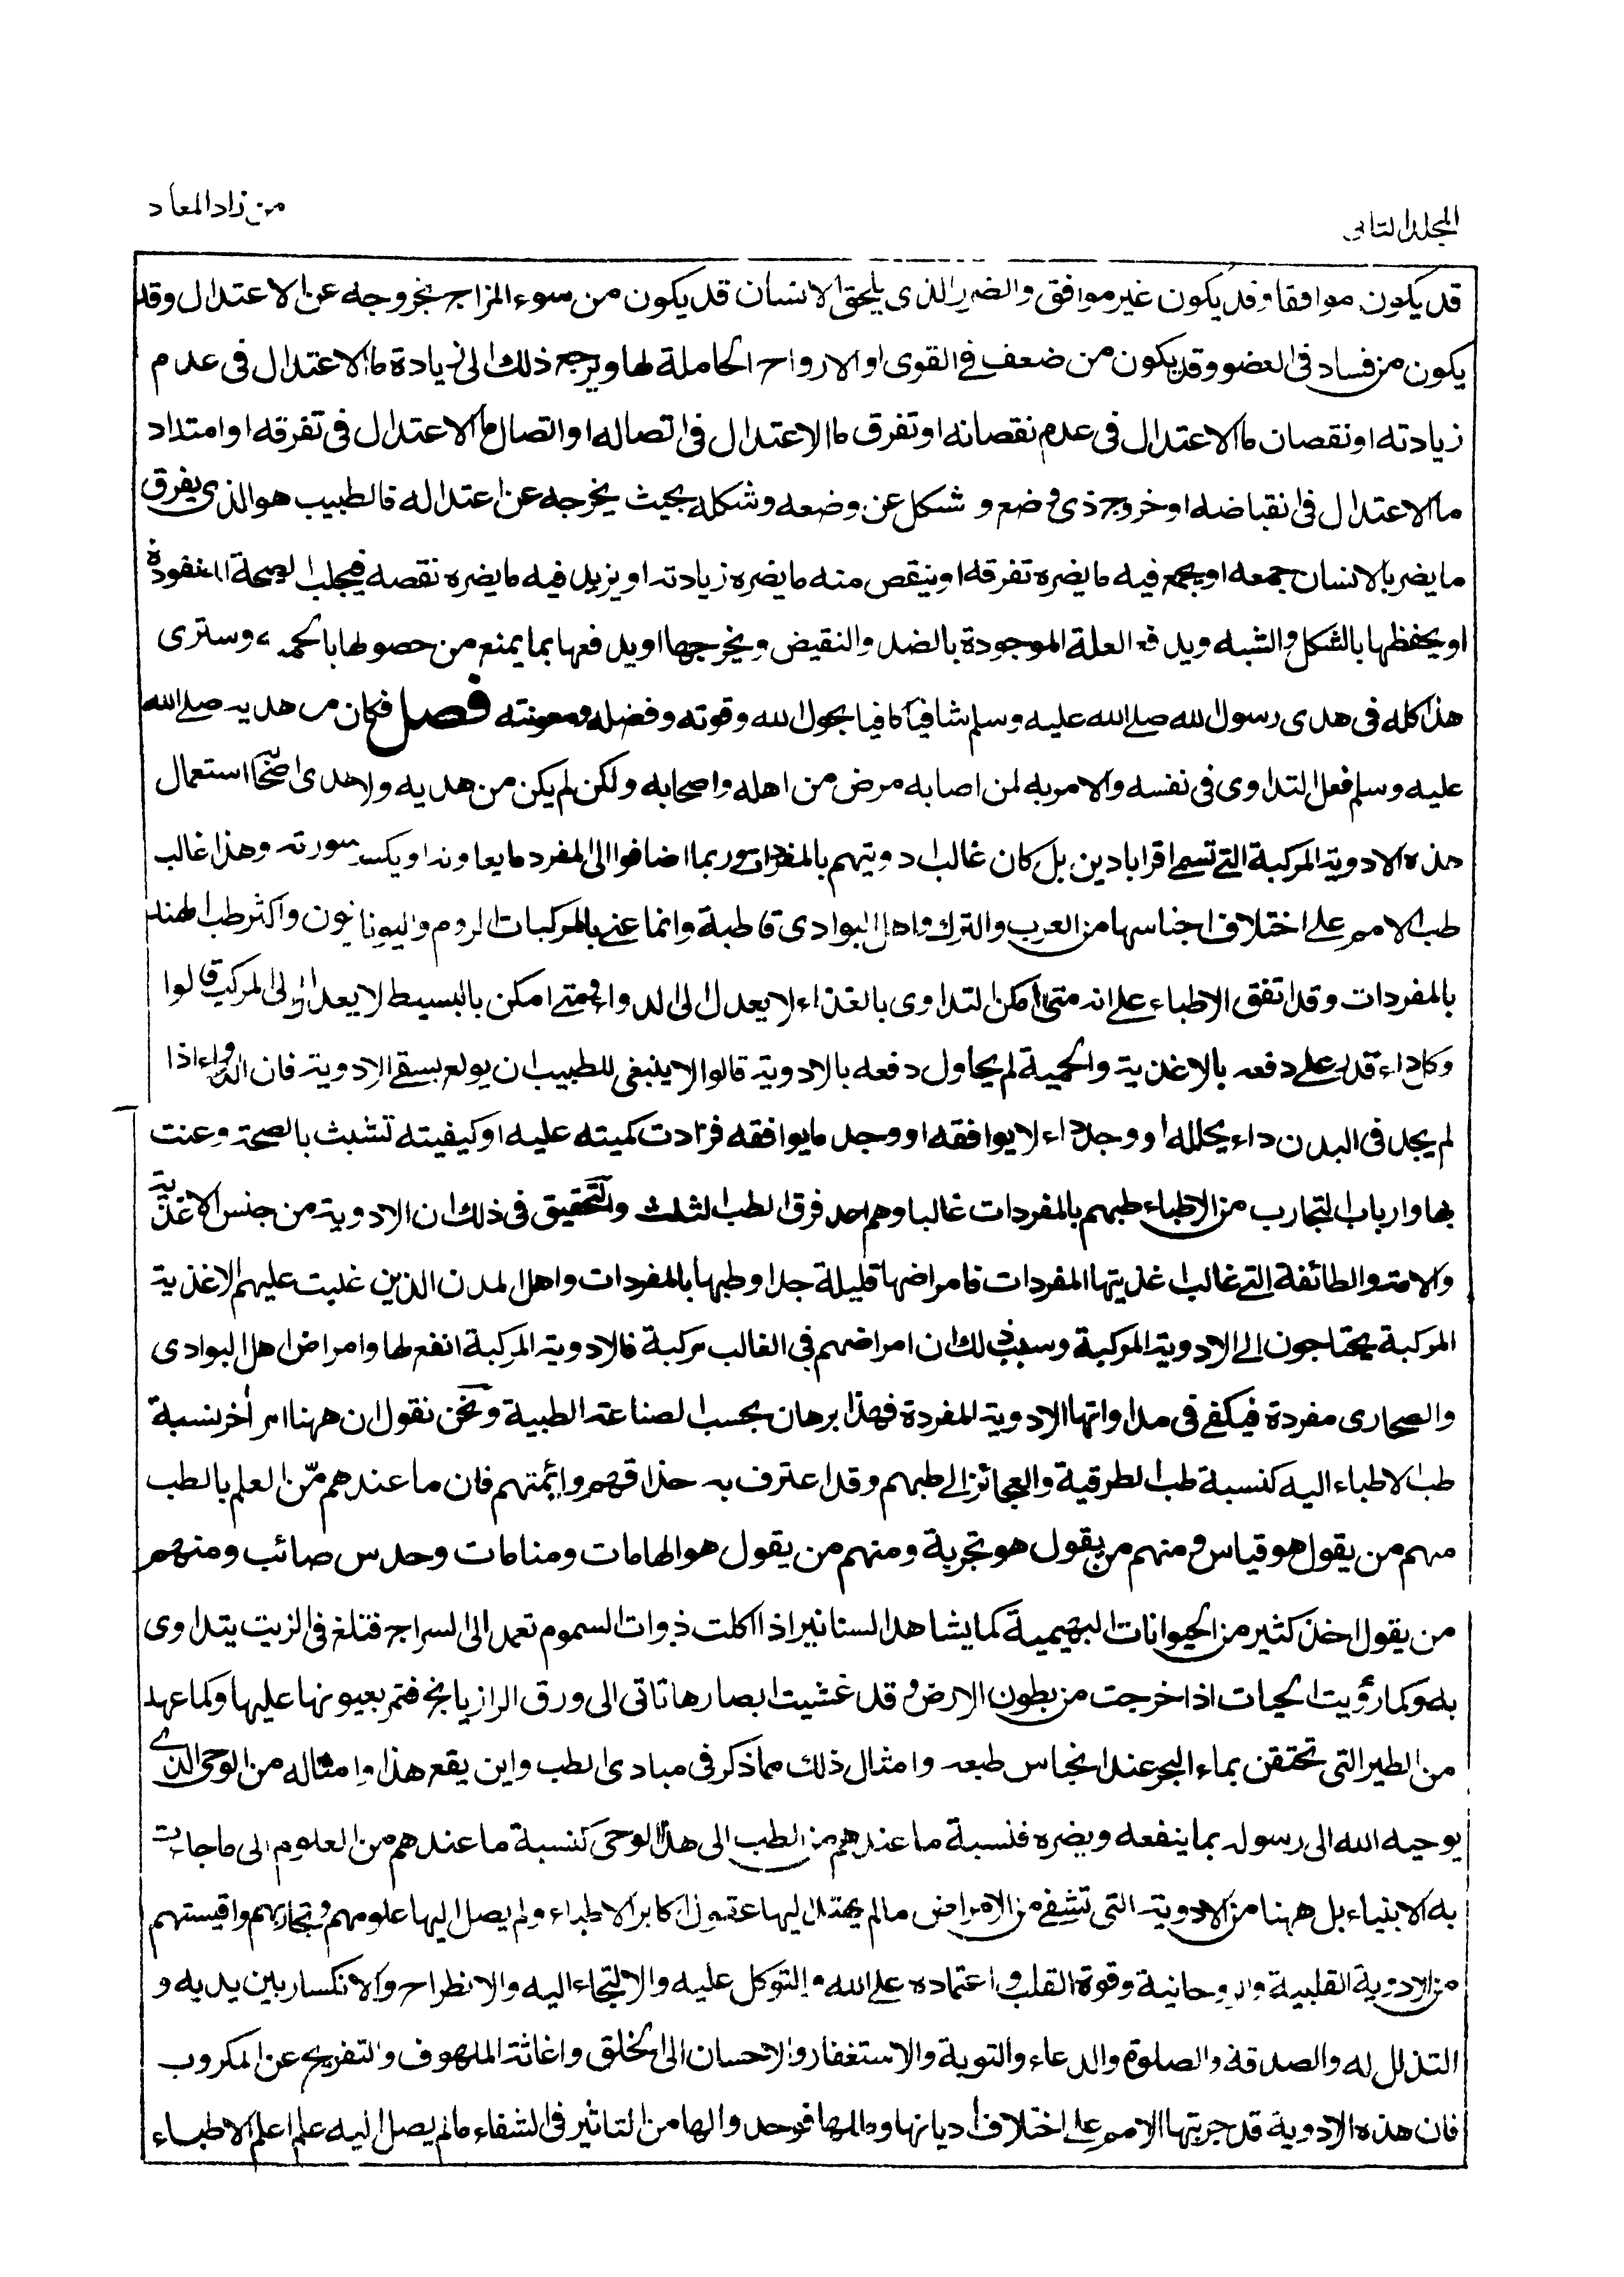 المجلد الثاني
من زاد المعاد
قد يكون موافقا وقد يكون غير موافق والضرر الذي يلحق الانسان قد يكون من سوء المزاج بخروجه عن الاعتدال وقد
يكون من فساد في العضو وقد يكون من ضعف في القوى او الارواح الحاملة لها ويرجع ذلك الى زيادة ما الاعتدال في عدم
زيادته او نقصان ما الاعتدال في عدم نقصانه او تفرق ما الاعتدال في اتصاله او اتصال ما الاعتدال في تفرقه او امتداد
ما الاعتدال في انقباضه او خروج ذي وضع و شكل عن وضعه وشكله بحيث يخرجه عن اعتداله فالطبيب هو الذي يفرق
ما يضر بالانسان جمعه او يجمع فيه ما يضره تفرقه او ينقص منه ما يضره زيادته او يزيد فيه ما يضره نقصه فيجلب الصحة المفقودة
او يحفظها بالشكل والشبه ويدفع العلة الموجودة بالضد والنقيض ويخرجها او يدفعها بما يمنع من حصولها بالحمية وسترى
هذا كله في هدى رسول الله صلى الله عليه وسلم شافيا كافيا بحول الله وقوته وفضله ومعونته فصل فكان من هديه صلى الله
عليه وسلم فعل التداوى في نفسه والامر به لمن اصابه مرض من اهله واصحابه ولكن لم يكن من هديه ولا هدى اصحابه استعمال
هذه الادوية المركبة التي تسمى اقراباذين بل كان غالب ادويتهم بالمفردات وربما اضافوا الى المفرد ما يعاونه او يكسر سورته وهذا غالب
طب الامم على اختلاف اجناسها من العرب والترك واهل البوادى قاطبة وانما عنى بالمركبات الروم واليونانيون واكثر طب الهند
بالمفردات وقد اتفق الاطباء على انه متى امكن التداوى بالغذاء لا يعدل الى الدواء ومتى امكن بالبسيط لا يعدل الى المركب قالوا
وكل داء قدر على دفعه بالاغذية والحمية لم يحاول دفعه بالادوية قالوا لا ينبغي للطبيب ان يولع بسقي الادوية فان الدواء اذا
لم يجد في البدن داء يحلله او وجد داء لا يوافقه او وجد ما يوافقه فزادت كميته عليه او كيفيته تشبث بالصحة وعبث
بها وارباب التجارب من الاطباء طبهم بالمفردات غالبا وهم احد فرق الطب الثلث والتحقيق في ذلك ان الادوية من جنس الاغذية
والامة والطائفة التي غالب اغذيتها المفردات فامراضها قليلة جدا وطبها بالمفردات واهل المدن الذين غلبت عليهم الاغذية
المركبة يحتاجون الى الادوية المركبة وسبب ذلك ان امراضهم في الغالب مركبة فالادوية المركبة انفع لها وامراض اهل البوادى
والصحارى مفردة فيكفي في مداواتها الادوية المفردة فهذا برهان بحسب الصناعة الطبية ونحن نقول ان ههنا امر آخر نسبة
طب الاطباء اليه كنسبة طب الطرقية والعجائز الى طبهم وقد اعترف به حذاقهم وائمتهم فان ما عندهم من العلم بالطب
منهم من يقول هو قياس ومنهم من يقول هو تجربة ومنهم من يقول هو الهامات ومنامات وحدس صائب ومنهم
من يقول اخذ كثير من الحيوانات البهيمية كما يشاهد السنانير اذا اكلت ذوات السموم تعمد الى السراج فتلغ في الزيت يتداوى
به وكما رؤيت الحيات اذا خرجت من بطون الارض وقد غشيت ابصارها تاتى الى ورق الرازيانج فتمر بعيونها عليها وكما عهد
من الطير التي تحتقن بماء البحر عند انحباس طبعه وامثال ذلك مما ذكر في مبادى الطب واين يقع هذا وامثاله من الوحى الذي
يوحيه الله الى رسوله بما ينفعه ويضره فنسبة ما عندهم من الطب الى هذا الوحى كنسبة ما عندهم من العلوم الى ما جاءت
به الانبياء بل ههنا من الادوية التي تشفي من الامراض ما لم يهتد اليها عقول اكابر الاطباء ولم يصل اليها علومهم وتجاربهم واقيستهم
من الادوية القلبية والروحانية وقوة القلب واعتماده على الله والتوكل عليه والالتجاء اليه والانطراح والانكسار بين يديه و
التذلل له والصدقة والصلوة والدعاء والتوبة والاستغفار والاحسان الى الخلق واغاثة الملهوف والتفريج عن المكروب
فان هذه الادوية قد جربتها الامم على اختلاف اديانها ومللها فوجدوا لها من التاثير في الشفاء ما لم يصل اليه علم اعلم الاطباء